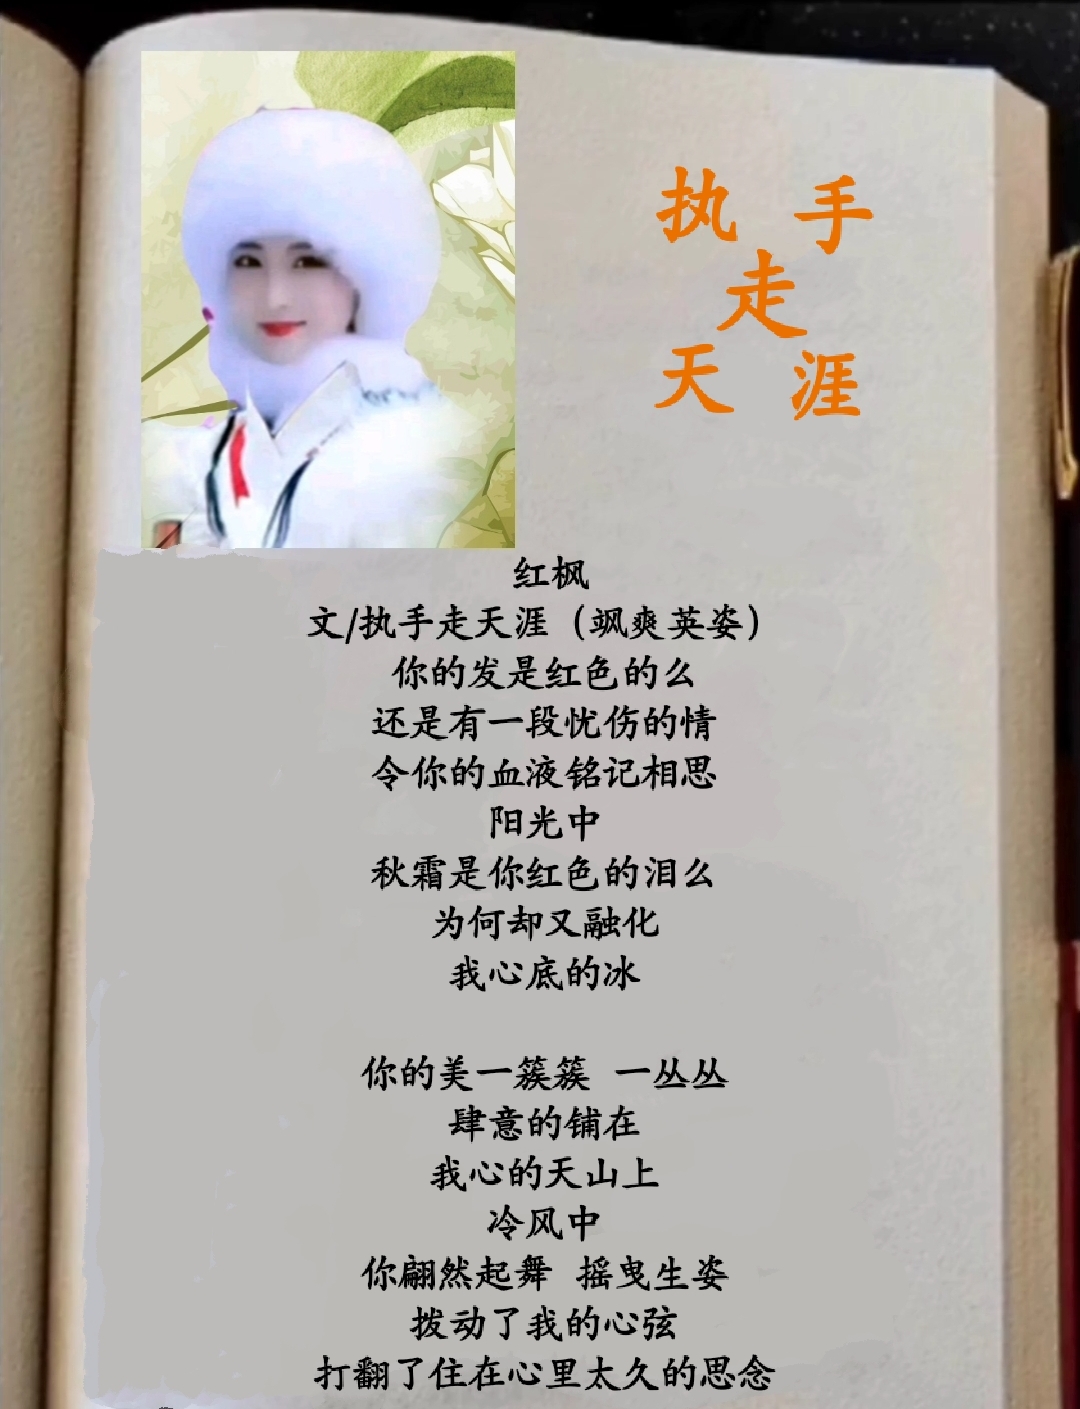 执 手
走
天 涯
红枫
文/执手走天涯（飒爽英姿）
你的发是红色的么
还是有一段忧伤的情
令你的血液铭记相思
阳光中
秋霜是你红色的泪么
为何却又融化
我心底的冰
你的美一簇簇 一丛丛
肆意的铺在
我心的天山上
冷风中
你翩然起舞 摇曳生姿
拨动了我的心弦
打翻了住在心里太久的思念